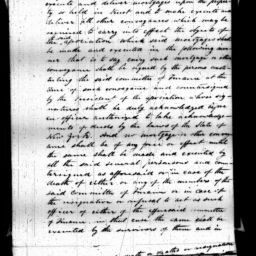 execute and deliver mortgages upon the property
so held in trust and to make execute and
deliver all other conveyances which may be
required to carry into effect the objects of
the association which said mortgages shall
be made and executed in the following man
ner that is to say every such mortgage or other
conveyance shall be signed by the persons consti
tuting the said committee of Finance at the
time of such conveyance and countersigned
by the president of the association whose sig
natures shall be duly acknowledged before
an officer authorized to take acknowledge
ments of deeds by the laws of the State of
New York. And no mortgage or other convey
ance shall be of any force or effect until
the same shall be made and executed by
all the said several persons and coun
tersigned as aforesaid or in case of the
death of either or any of the members of the
said Committee of Finance or in case of
the resignation or refusal to act as such
officer of either of the aforesaid committee
of Finance in that case the same shall be
executed by the survivors of them and in
death or deaths or resignation